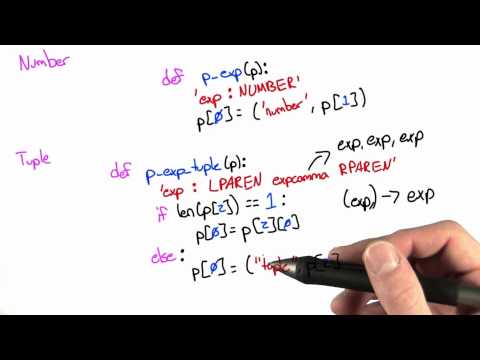 Number
def p_exp(p):
'exp : NUMBER'
p[0] = ('number', p[1])
Tuple
def p_exp_tuple(p):
exp, exp, exp
'exp : LPAREN expcomma RPAREN'
if len(p[2]) == 1:
(exp,) → exp
p[0] = p[2][0]
else:
p[0] = ("tuple", p[2]